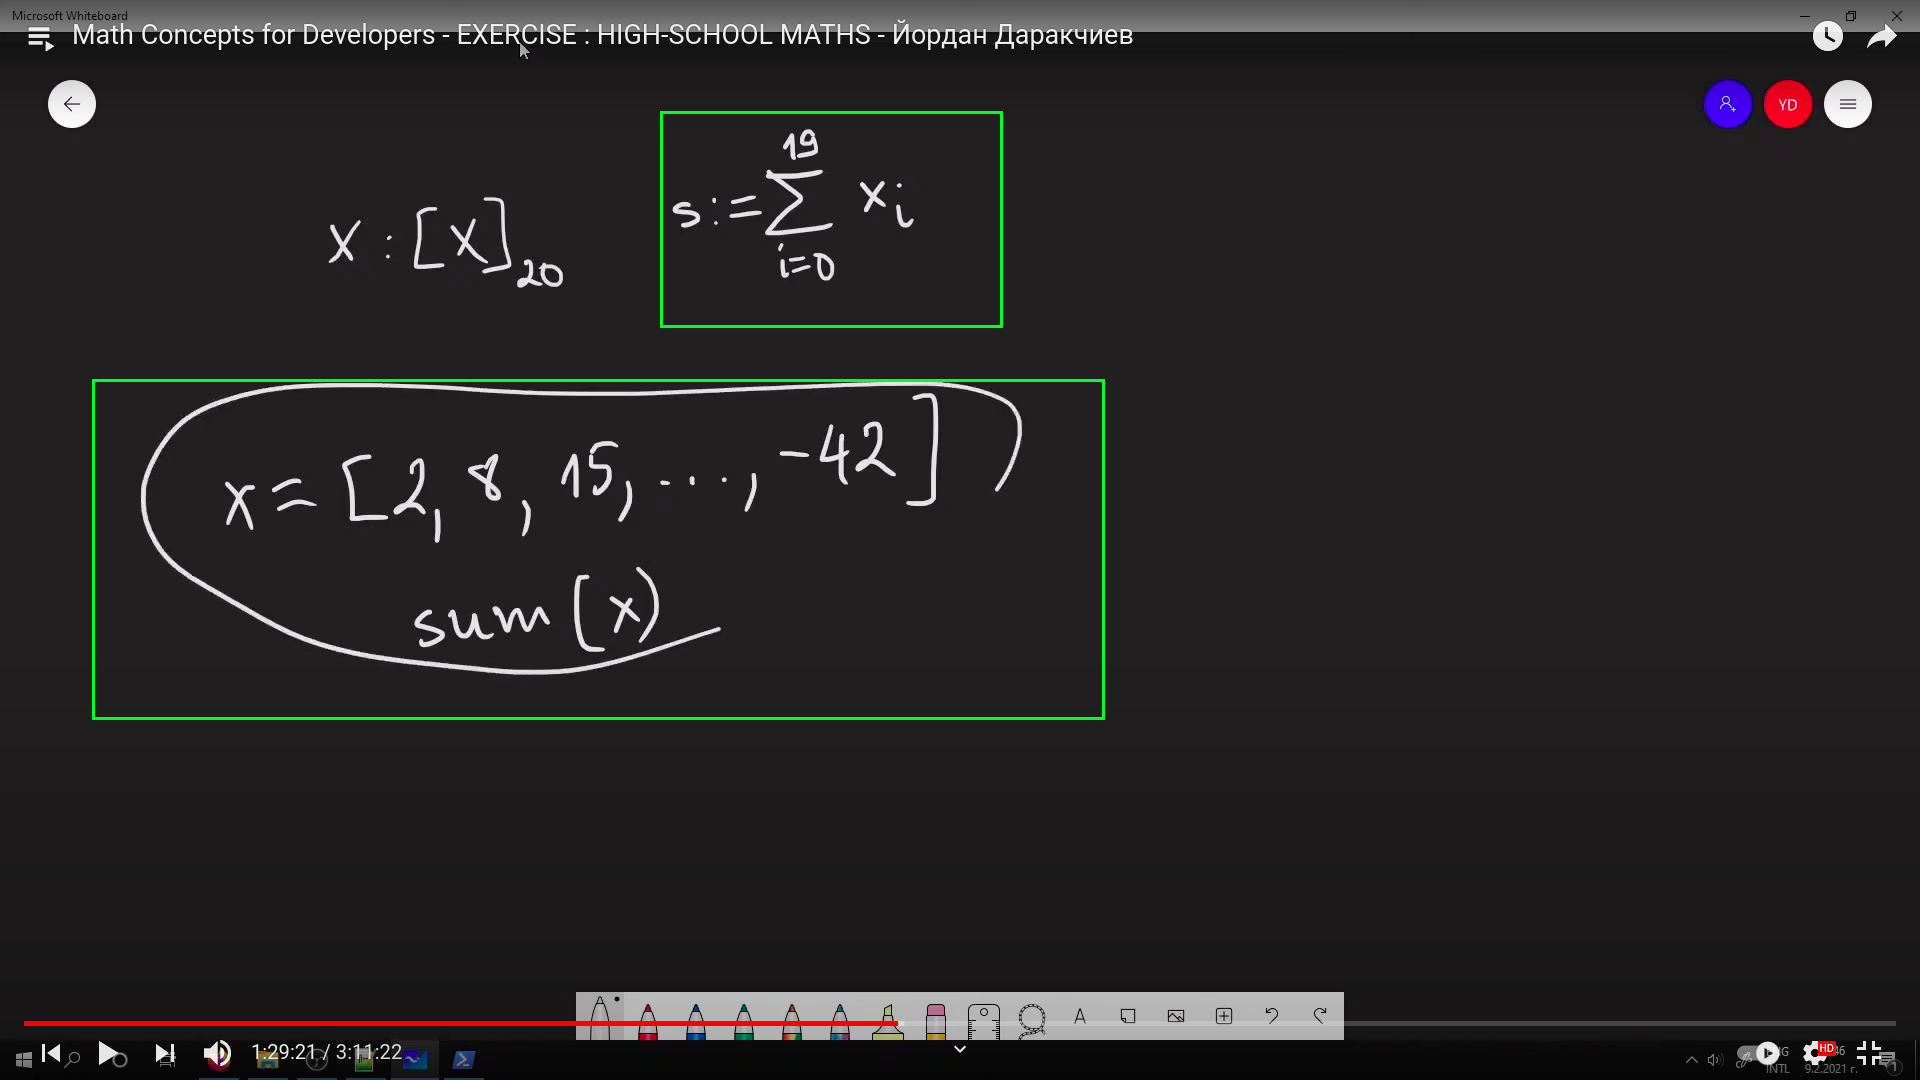 Microsoft Whiteboard
Math Concepts for Developers - EXERCISE : HIGH-SCHOOL MATHS - Йордан Даракчиев
YD
19
s := ∑ xᵢ
i=0
x : [x]₂₀
x = [2, 8, 15, ..., -42]
sum(x)
A
1:29:21 / 3:11:22
HD
INTL
9.2.2021 г.
1